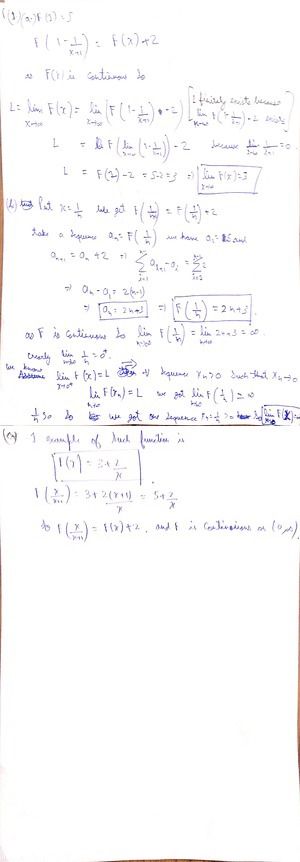 (8) (a) F(1) = 5
F(1 - 1/(x+1)) = F(x) + 2
as F(x) is continuous so
L = lim x→∞ F(x) = lim x→∞ (F(1 - 1/(x+1)) - 2) [L finitely exists because lim x→∞ F(1 - 1/(x+1)) - 2 exists]
L = F(lim x→∞ (1 - 1/(x+1))) - 2 because lim x→∞ 1/(x+1) = 0.
L = F(1) - 2 = 5 - 2 = 3 ⇒ lim x→∞ F(x) = 3
(b) Put x = 1/n we get F(1/(n+1)) = F(1/n) + 2
take a sequence an = F(1/n) we have a1 = 5 and
an+1 = an + 2 ⇒ Σ ai+1 - ai = Σ 2
⇒ an - a1 = 2(n-1)
⇒ an = 2n+3 ⇒ F(1/n) = 2n+3
as F is continuous so lim n→∞ F(1/n) = lim n→∞ 2n+3 = ∞.
clearly lim n→∞ 1/n = 0+.
we know lim x→0+ F(x) = L ⇒ ∀ sequence xn > 0 such that xn → 0
lim n→∞ F(xn) = L we got lim n→∞ F(1/n) = ∞
so we got one sequence xn = 1/n > 0 so lim F(x) = ∞
(c) 1 example of such function is
F(x) = 3 + 2/x
F(x/(x+1)) = 3 + 2(x+1)/x = 5 + 2/x
so F(x/(x+1)) = F(x) + 2, and F is continuous on (0,∞).